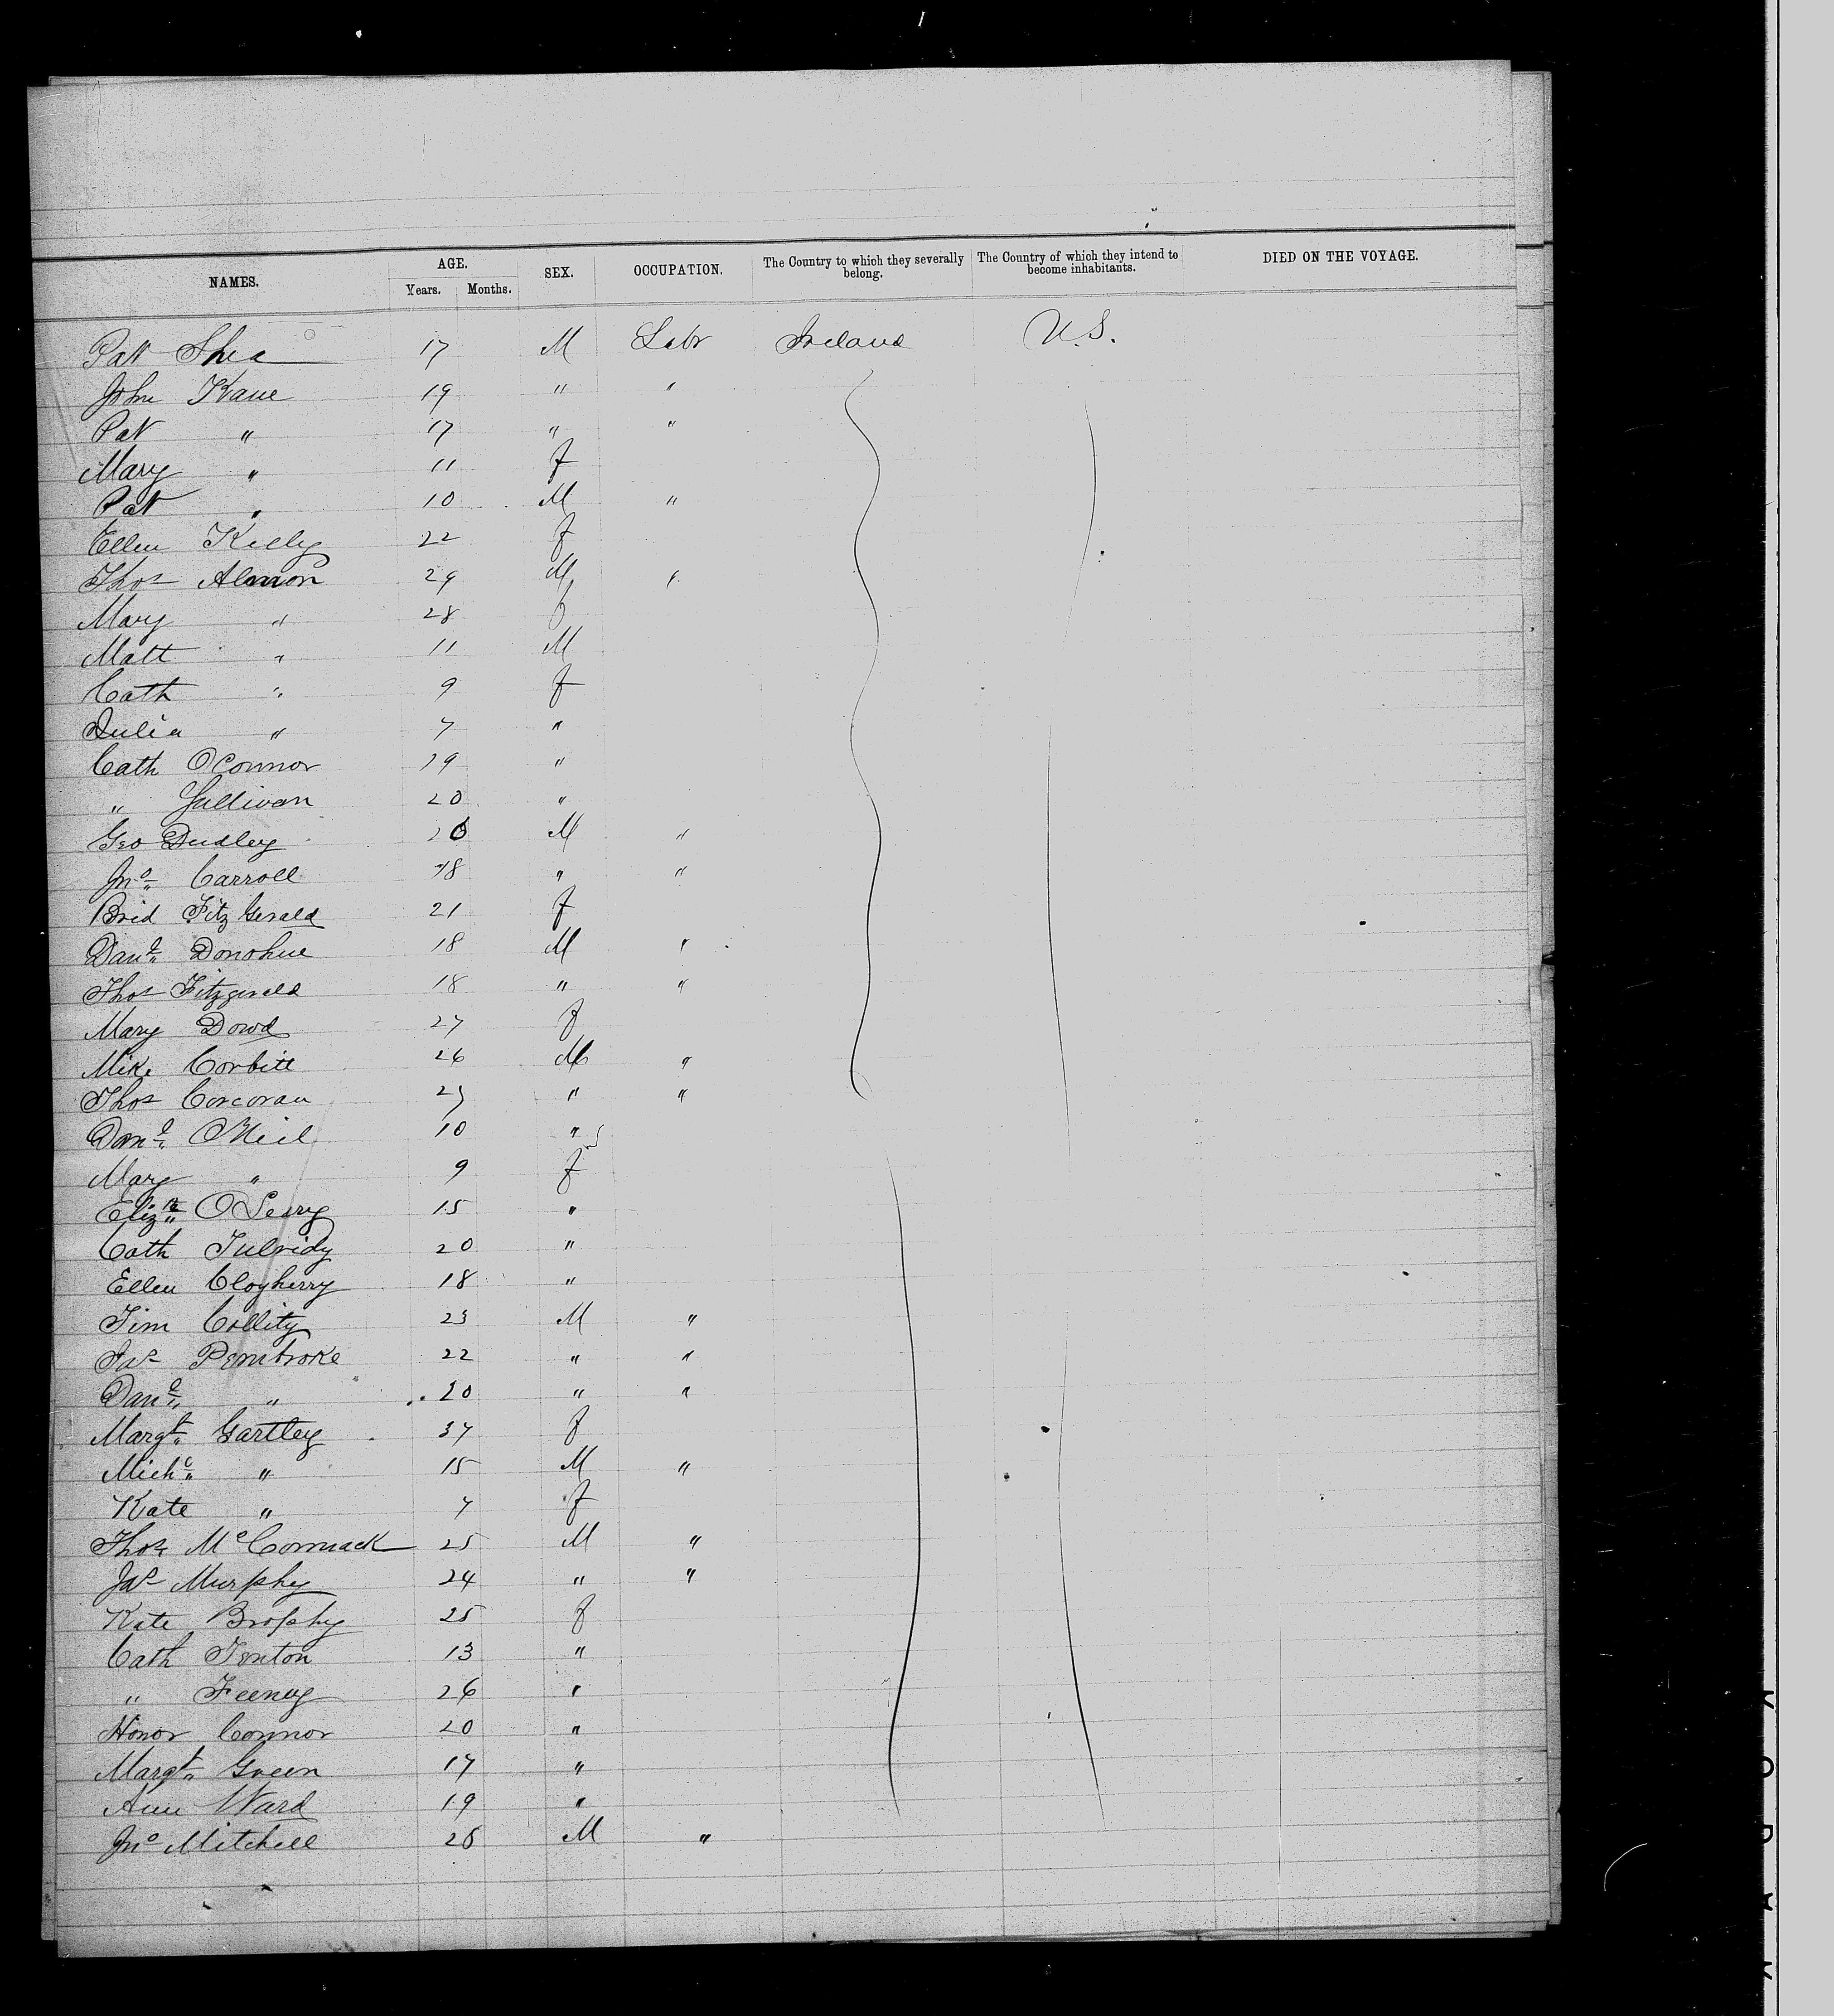 NAMES. AGE. Years. Months. SEX. OCCUPATION. The Country to which they severally belong. The Country of which they intend to become inhabitants. DIED ON THE VOYAGE.
Pat Shea 17 M Labr Ireland U.S.
John Kane 19 " "
Pat " 17 " "
Mary " 11 f
Pat " 10 M "
Ellen Kelly 22 f
Thos Almon 29 M "
Mary " 28 f
Matt " 11 M
Cath " 9 f
Julia " 7 "
Cath OConnor 19 "
" Sullivan 20 "
Geo Dudley 20 M "
Jno Carroll 18 " "
Brid Fitz Gerald 21 f
Danl Donohue 18 M "
Thos Fitzgerald 18 " "
Mary Dowd 27 f
Mike Corbitt 26 M "
Thos Corcoran 25 " "
Danl ONeil 10 "
Mary " 9 f
Elizth OLeary 15 "
Cath Tulvidy 20 "
Ellen Clogherry 18 "
Tim Collity 23 M "
Jas Pembroke 22 " "
Danl " 20 " "
Margt Gartley 37 f
Michl " 15 M "
Kate " 7 f
Thos McCormack 25 M "
Jas Murphy 24 " "
Kate Brophy 25 f
Cath Fenton 13 "
" Feeney 26 "
Honor Connor 20 "
Margt Green 17 "
Ann Ward 19 "
Jno Mitchell 25 M "
KODAK